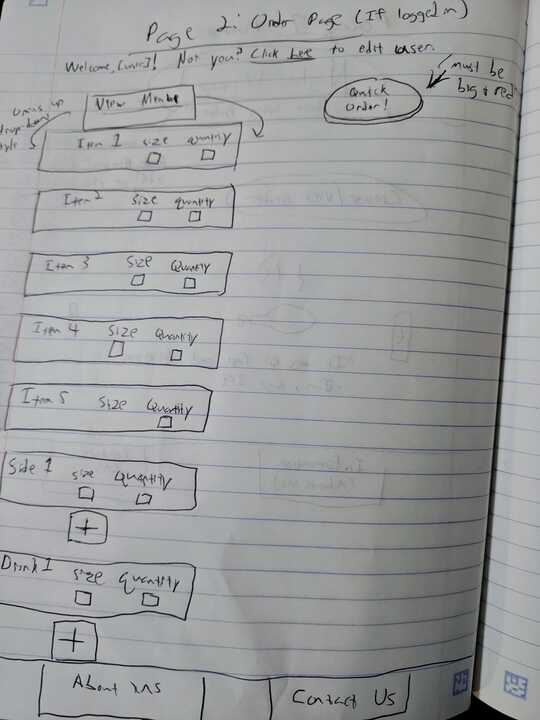 Page 2: Order Page (If logged in)
Welcome, [user]! Not you? Click here to edit user.
must be big + red
View Menu
Quick Order!
opens up drop down style
Item 1 size quantity
Item 2 size quantity
Item 3 size Quantity
Item 4 size Quantity
Item 5 size Quantity
Side 1 size Quantity
+
Drink 1 size quantity
+
About us
Contact Us